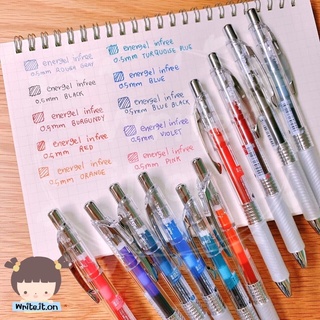 energel infree
0.5mm ROUGE GRAY
energel infree
0.5mm BLACK
energel infree
0.5mm BURGUNDY
energel infree
0.5mm RED
energel infree
0.5mm ORANGE
energel infree
0.5mm TURQUOISE BLUE
energel infree
0.5mm BLUE
energel infree
0.5mm BLUE BLACK
energel infree
0.5mm VIOLET
energel infree
0.5mm PINK
writeit.on